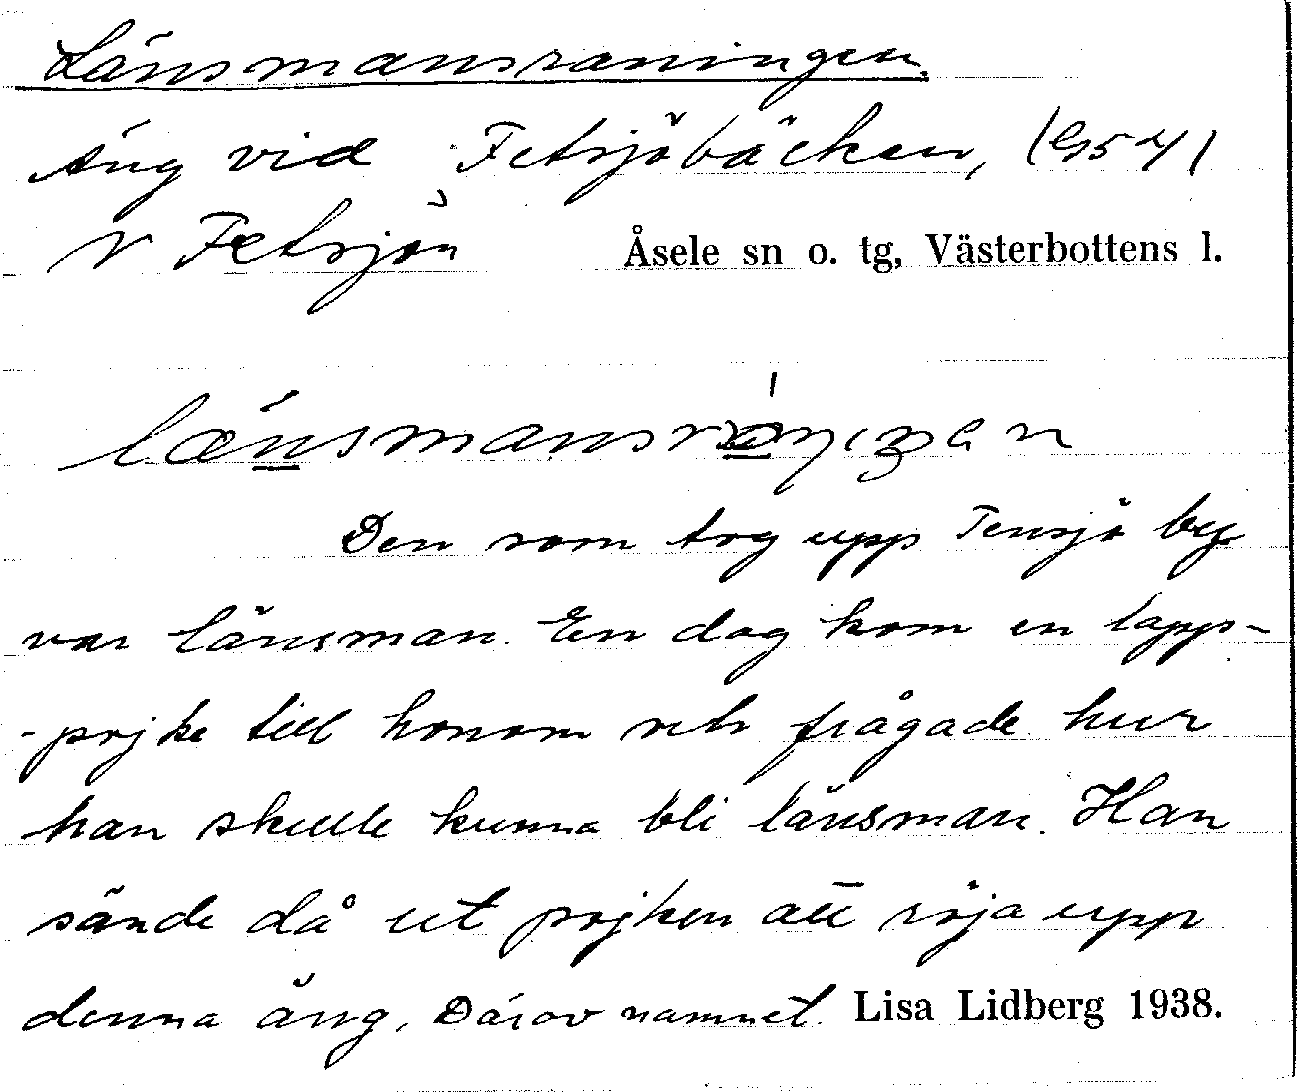 Länsmansraningen.
Äng vid Fetsjöbäcken, (G54)
V Fetsjön Åsele sn o. tg, Västerbottens l.
Den som tog upp Tensjö by
var länsman. En dag kom en lapp-
-pojke till honom och frågade hur
han skulle kunna bli länsman. Han
sände då ut pojken att röja upp
denna äng. Därav namnet. Lisa Lidberg 1938.